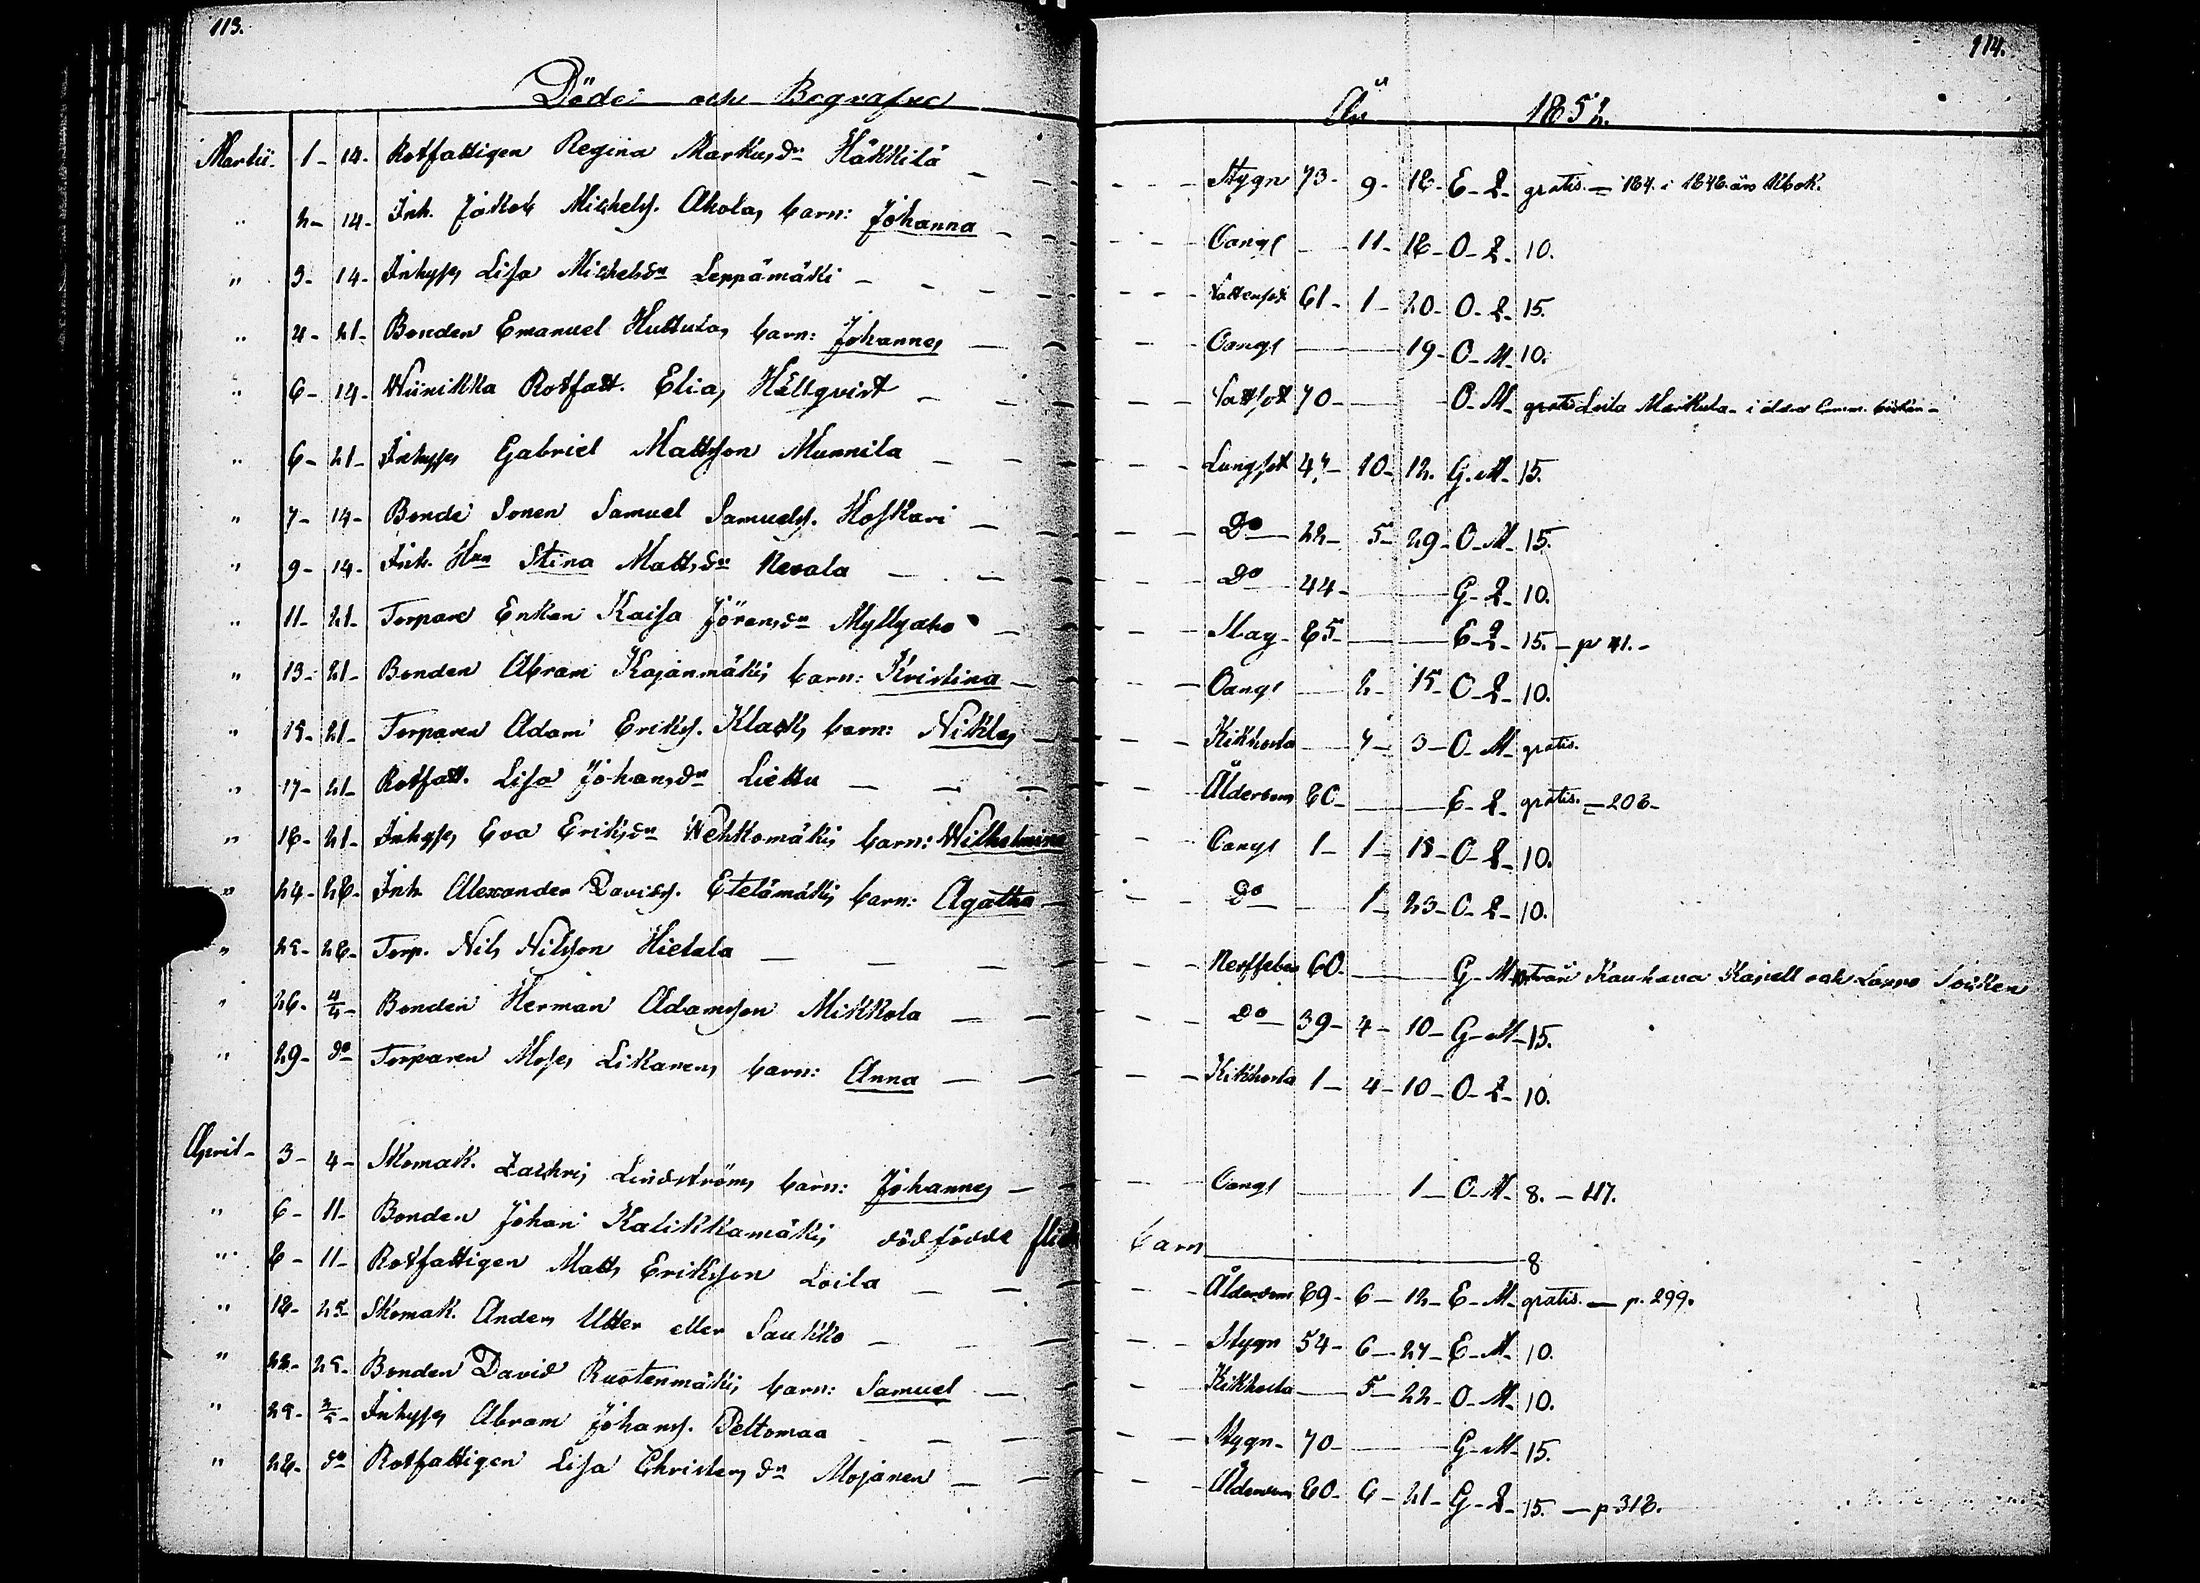 113.
114.
Döde och Begrafne
År 1852.
Martii. 1- 14- Rotfattigen Regina Markusdr Häkkilä - - - Stygn 73- 9- 18- E- Q- gratis. = 184. i 1848 års Kbok.
" 2- 14- Inh. Jakob Michelss. Ahola, barn: Johanna - - - Oangf - 11- 18- O- Q- 10.
" 3- 14- Inhyses Lisa Michelsdr Leppämäki - - - Vattusot 61- 1- 20- O- Q- 15.
" 4- 21- Bonden Emanuel Huttulas barn: Johannes - - Oangf 19- O- M. 10.
" 6- 14- Wiinikka Rotfatt. Elias Hällqvist - - - Vattsot 70- O- M- gratis Loila Markula - i äldre Comm. boken -
" 6- 21- Inhyses Gabriel Mattsson Munnila - - - Lungsot 47- 10- 12. G- M- 15.
" 7- 14- Bonde Sonen Samuel Samuelss. Koskari - - Do 22- 5- 29- O- M- 15.
" 9- 14- Inh. Hun Stina Mattsdr Nevala - - - Do 44- G- Q- 10.
" 11- 21- Torpare Enkan Kaisa Jöransdr Myllyaho - - Slag- 85- E- Q- 15. - p 41. -
" 13- 21- Bonden Abram Kajanmäkis barn: Kristina - - Oangf - 2- 15- O- Q- 10.
" 15- 21- Torparen Adam Erikss. Klacks barn: Niklas - - Kikhosta - 7- 3- O- M- gratis.
" 17- 21- Rotfatt. Lisa Johansdr Liettu - - - Ålderdom 80- E- Q- gratis. = 208-
" 18- 21- Inhyses Eva Eriksdr Wehkomäkis barn: Wilhelmina - Oangf 1- 1- 18- O- Q- 10.
" 24- 28- Inh. Alexander Davidss. Etelämäkis barn: Agatha - - Do - 1- 23- O- Q- 10.
" 25- 28- Torp. Nils Nilsson Hietala - - - Nerffeber 60- G- M- från Kauhava Kapell och Lappo Socken
" 26- 4/4- Bonden Herman Adamsson Mikkola - - - Do 39- 4- 10- G- M- 15.
" 29- do Torparen Moses Likanens barn: Anna - - - Kikhosta 1- 4- 10- O- Q- 10.
April- 3- 4- Skomak. Zachris Lindströms barn: Johannes - - Oangf 1- O- M- 8. - 117.
" 6- 11- Bonden Johan Kalikkamäkis dödfödde flick barn 8
" 8- 11- Rotfattigen Matts Eriksson Loila - - - Ålderdom 89- 6- 12- E- M- gratis. - p. 299.
" 18- 25- Skomak. Anders Utter eller Saukko - - - Stygn 54- 6- 27- E- M- 10.
" 22- 25- Bonden David Ruotenmäkis barn: Samuel - - - Kikhosta - 5- 22- O- M- 10.
" 25- 2/5- Inhyses Abram Johanss. Peltomaa - - - Stygn- 70- G- M- 15.
" 28- do Rotfattigen Lisa Christersdr Mojanen - - - Ålderdom 80- 6- 21- G- Q- 15. - p 318.